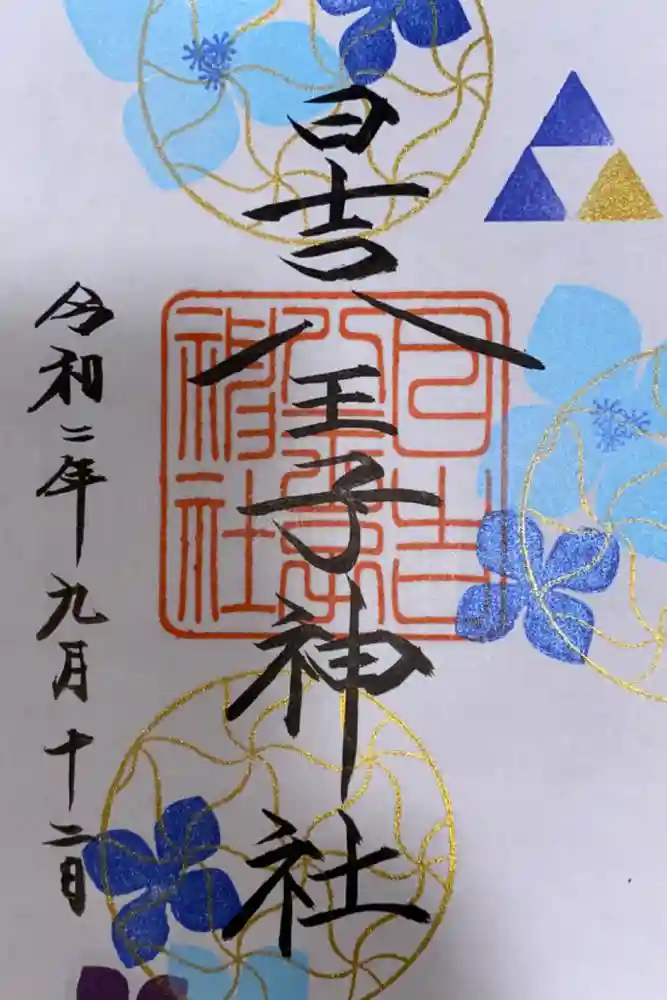 日吉八王子神社
日吉
八王子
神社
令和二年九月十二日